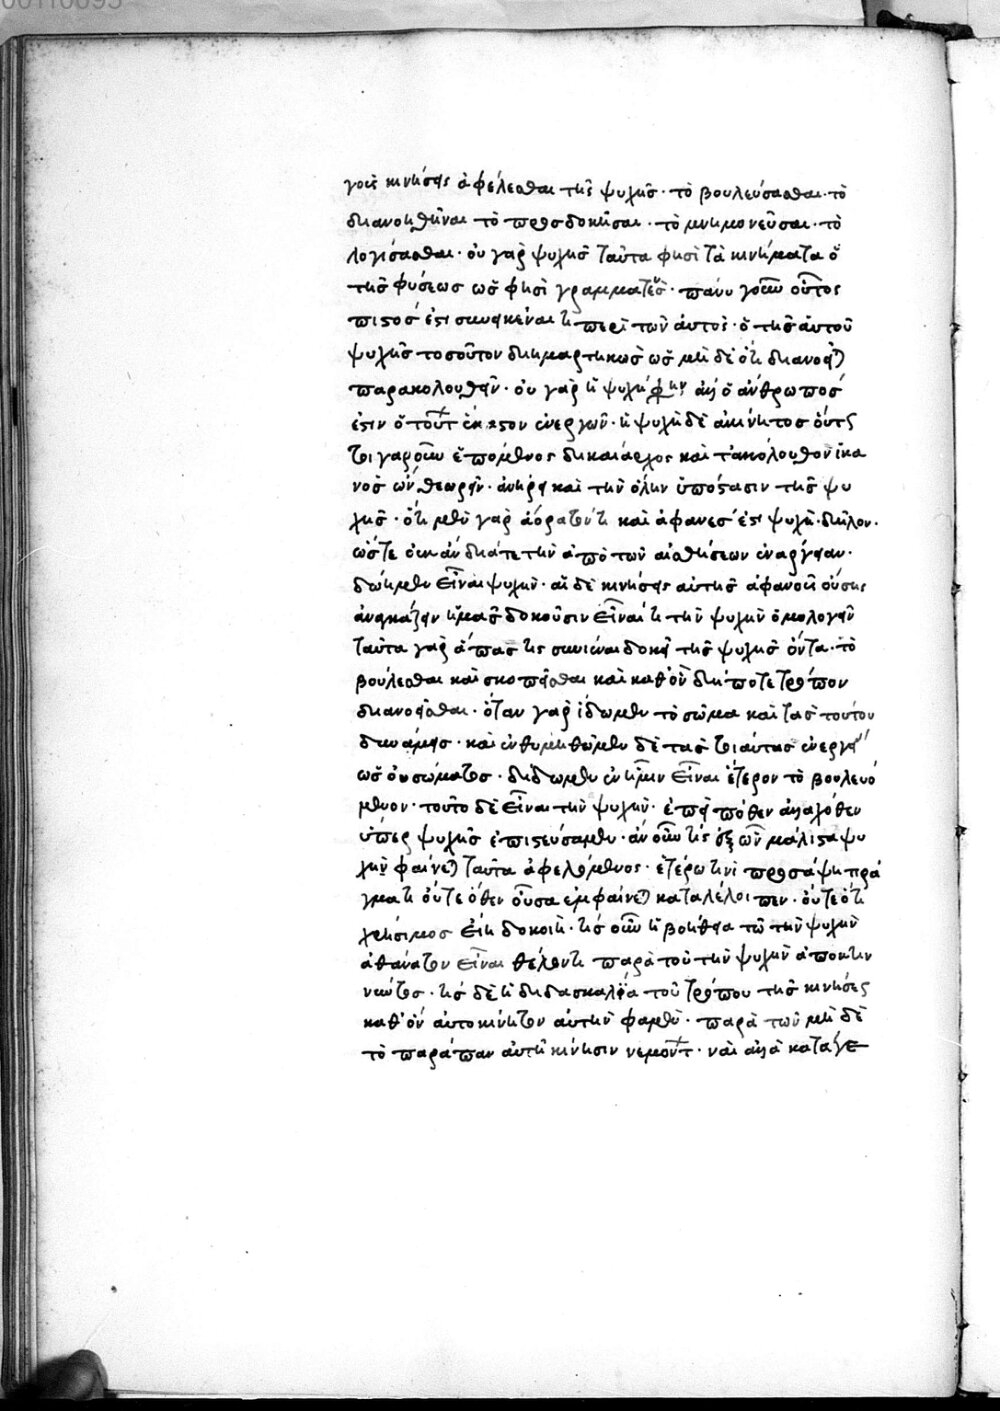 γους κινήσεις ἀφελέσθαι τῆς ψυχῆς· τὸ βουλεύσασθαι· τὸ
διανοηθῆναι τὸ προσδοκῆσαι· τὸ μνημονεῦσαι· τὸ
λογίσασθαι· οὐ γὰρ ψυχῆς ταῦτά φησι τὰ κινήματα ὁ
τῆς φύσεως ὥς φησι γραμματεύς· πάνυ γοῦν οὗτος
πιστός ἐστι συνηκέναι τι περὶ τῶν ἀυτὸς· ὁ τῆς ἀυτοῦ
ψυχῆς τοσοῦτον διημαρτηκὼς ὡς μηδὲ ὅτι διανοεῖται
παρακολουθεῖν· οὐ γὰρ ἡ ψυχή φησιν ἀλλ' ὁ ἄνθρωπός
ἐστιν ὁ τούτων ἕκαστον ἐνεργῶν· ἡ ψυχὴ δὲ ἀκίνητος οὕτως
τοιγαροῦν ἑπόμενος δικαίαρχος καὶ τἀκόλουθον ἱκα
νὸς ὢν θεωρεῖν· ἀνήρει καὶ τὴν ὅλην ὑπόστασιν τῆς ψυ
χῆς· ὅτι μὲν γὰρ ἀόρατόν τι καὶ ἀφανές ἐστι ψυχὴ· δῆλον·
ὥστε οὐκ ἂν διά τε τὴν ἀπὸ τῶν αἰσθήσεων ἐνάργειαν·
δώημεν εἶναι ψυχὴν· αἱ δὲ κινήσεις αὐτῆς ἀφανοῦς οὔσης
ἀναγκάζειν ἡμᾶς δοκοῦσιν εἶναί τι τὴν ψυχὴν ὁμολογεῖν
ταῦτα γὰρ ἅπας τις συνιέναι δοκεῖ τῆς ψυχῆς ὄντα· τὸ
βούλεσθαι καὶ σκοπεῖσθαι καὶ καθ' ὃν δήποτε τρόπον
διανοεῖσθαι· ὅταν γὰρ ἴδωμεν τὸ σῶμα καὶ τὰς τούτου
δυνάμεις· καὶ ἐνθυμηθῶμεν δὲ τὰς τοιαύτας ἐνεργείας
ὡς οὐ σώματος· διδῶμεν ἐν ἡμῖν εἶναι ἕτερον τὸ βουλευό
μενον· τοῦτο δὲ εἶναι τὴν ψυχὴν· ἐπεὶ πόθεν ἀλλαχόθεν
ὑπὲρ ψυχῆς ἐπιστεύσαμεν· ἂν οὖν τις ἐξ ὧν μάλιστα ψυ
χὴν φαίνεται ταῦτα ἀφελόμενος· ἑτέρῳ τινὶ προσάψῃ πρά
γματι οὔτε ὅθεν οὖσα ἐμφαίνεται καταλέλοιπεν· οὔτε ὅτι
χρήσιμος εἴη δοκοίη· τίς οὖν ἡ βοήθεια τῷ τὴν ψυχὴν
ἀθάνατον εἶναι θέλοντι παρὰ τοῦ τὴν ψυχὴν ἀποκτιν
νύντος· τίς δὲ ἡ διδασκαλία τοῦ τρόπου τῆς κινήσεως
καθ' ὃν αὐτοκίνητον αὐτήν φαμεν· παρὰ τῶν μηδὲ
τὸ παράπαν αὐτῇ κίνησιν νεμόντων· ναὶ ἀλλὰ κατά γε